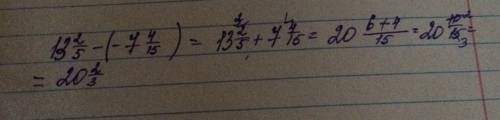 13 2/5 - (-7 4/15) = 13 2/5 + 7 4/15 = 20 6+4/15 = 20 10/15 =
= 20 2/3